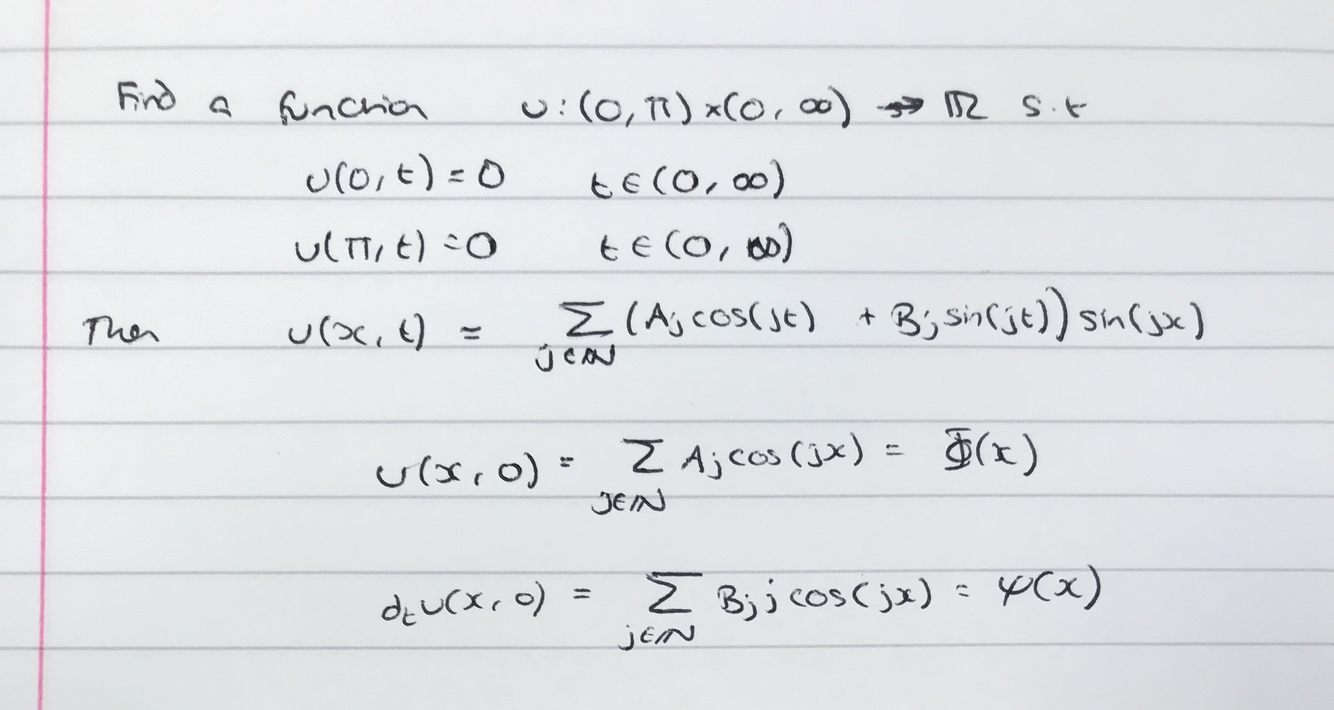 Find a function u:(0,π)×(0,∞) → ℝ s.t
u(0,t)=0 t∈(0,∞)
u(π,t)=0 t∈(0,∞)
Then u(x,t) = ∑_{j∈ℕ} (A_j cos(jt) + B_j sin(jt)) sin(jx)
u(x,0) = ∑_{j∈ℕ} A_j cos(jx) = Φ(x)
∂_t u(x,0) = ∑_{j∈ℕ} B_j j cos(jx) = ψ(x)